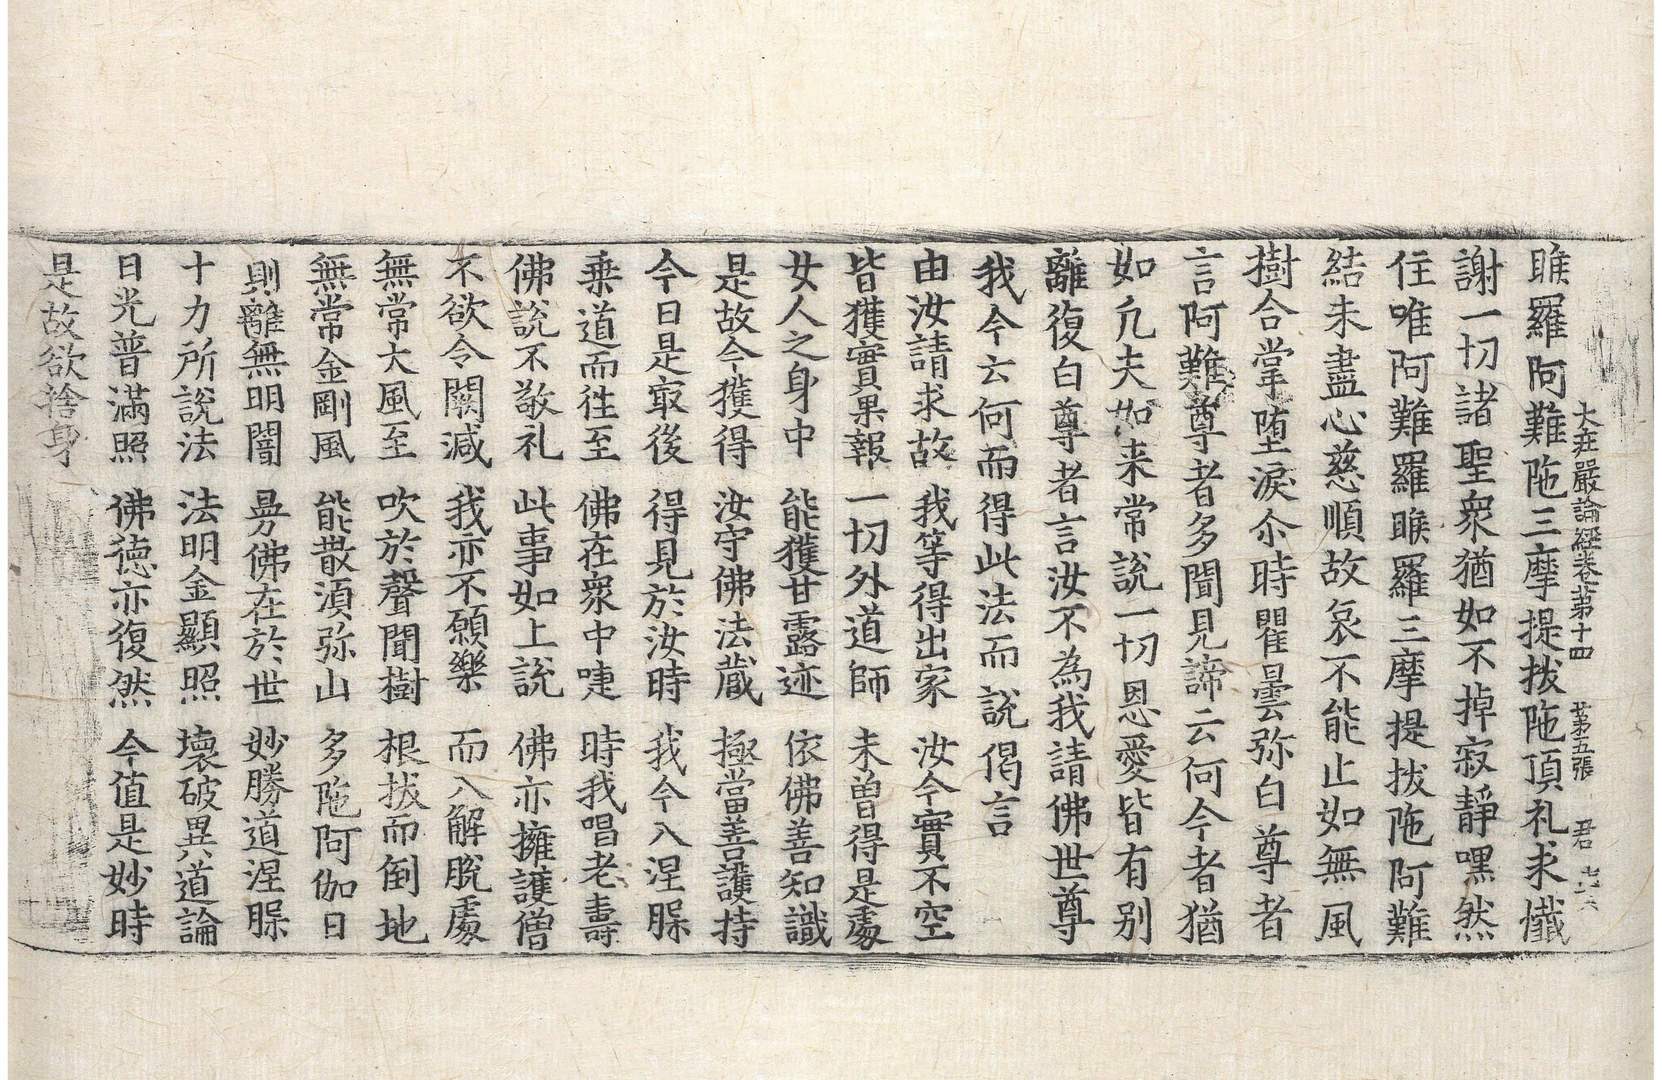 大莊嚴論經卷第十四 第五張 君
睺羅阿難陁三摩提拔陁頂礼求懺
謝一切諸聖衆猶如不掉寂靜嘿然
住唯阿難羅羅睺羅三摩提拔陁阿難
結未盡心慈順故哀不能止如無風
樹合掌堕淚尒時瞿曇弥白尊者
言阿難尊者多聞見諦云何今者猶
如凢夫如来常說一切恩愛皆有別
離復白尊者言汝不為我請佛世尊
我今云何而得此法而說偈言
由汝請求故 我等得出家 汝今實不空
皆獲實果報 一切外道師 未曽得是處
女人之身中 能獲甘露迹 依佛善知識
是故今獲得 汝守佛法藏 極當善護持
今日是㝡後 得見於汝時 我今入涅槃
乗道而徃至 佛在衆中嚏 時我唱老壽
佛說不敬礼 此事如上說 佛亦擁護僧
不欲令闕減 我亦不願樂 而入解脫處
無常大風至 吹於聲聞樹 根拔而倒地
無常金剛風 能散湏弥山 多陁阿伽日
則離無明闇 曼佛在於世 妙勝道涅槃
十力所說法 法明金顯照 壞破異道論
日光普滿照 佛德亦復然 今值是妙時
是故欲捨身